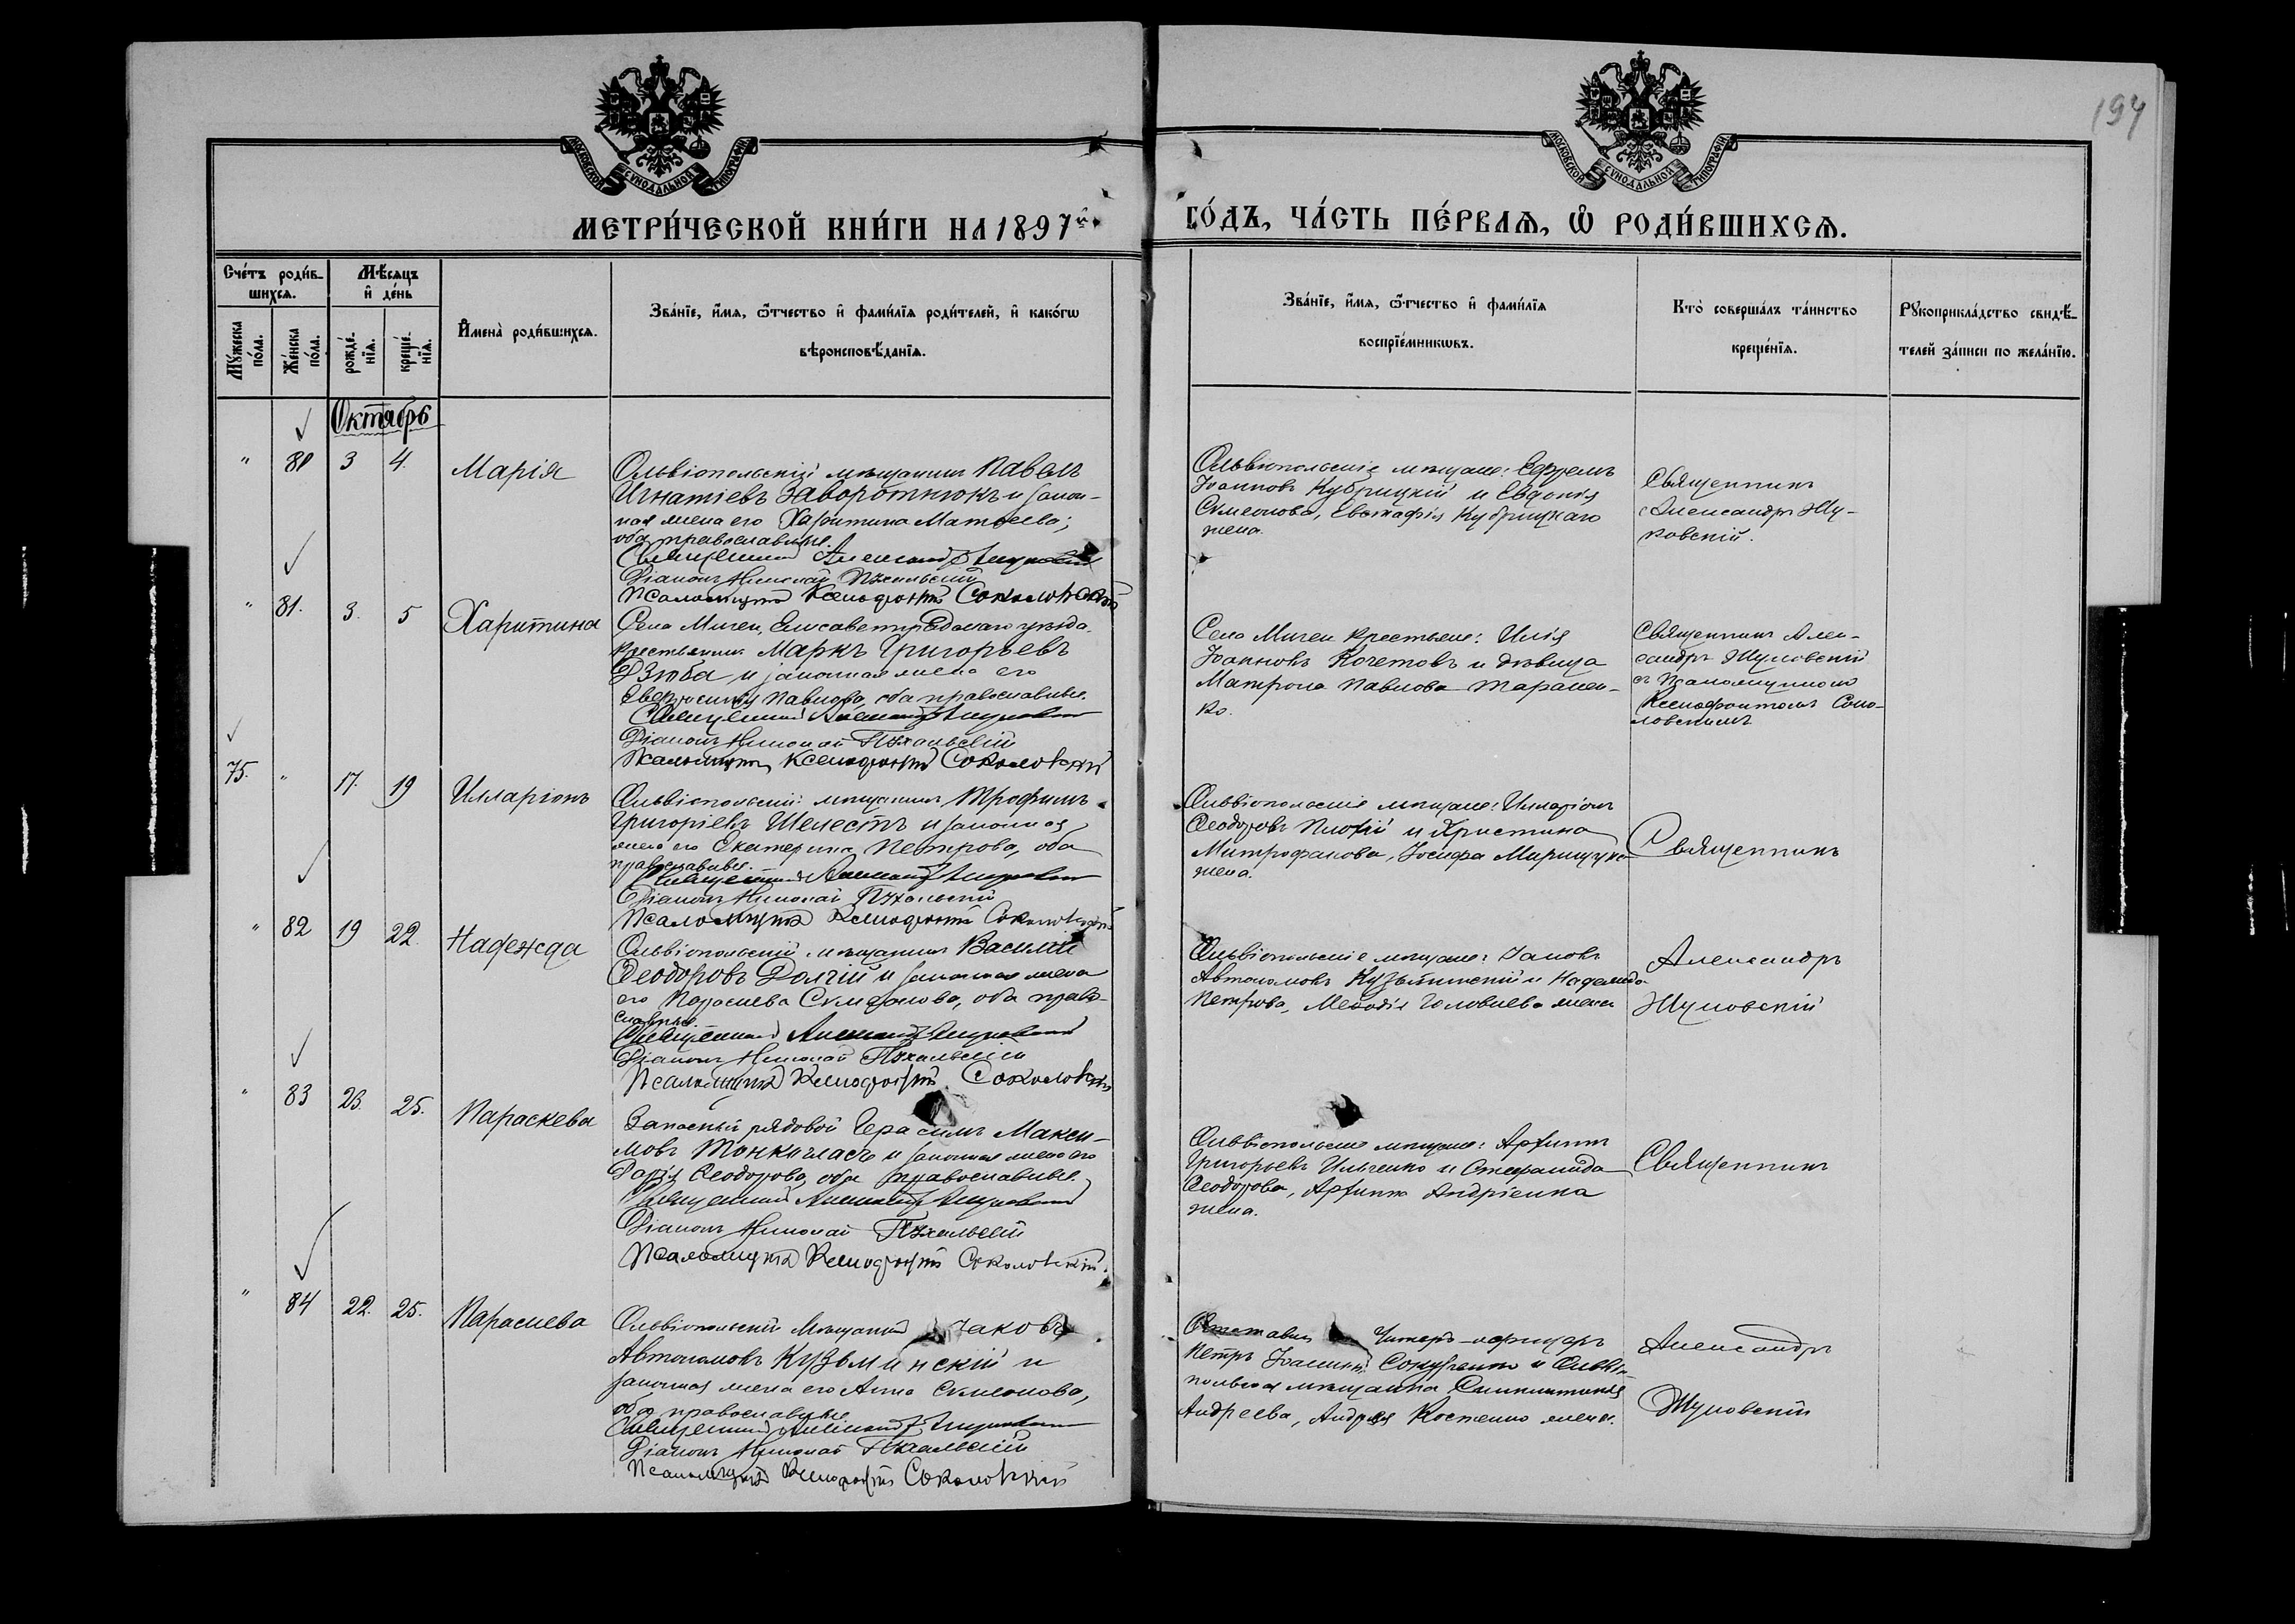 194
МОСКОВСКОЙ СѴНОДАЛЬНОЙ ТИПОГРАФІИ
МОСКОВСКОЙ СѴНОДАЛЬНОЙ ТИПОГРАФІИ
МЕТРИ́ЧЕСКОЙ КНИ́ГИ НА 1897й
ГО́ДЪ, ЧА́СТЬ ПЕ́РВАѦ, Ѡ҆ РОДИ́ВШИХСѦ.
Сче́тъ роди́в-
шихсѧ.
Мѣ́сѧцъ
и҆ де́нь
Мꙋ́жеска
по́ла.
Же́нска
по́ла.
рожде́-
нїѧ.
креще́-
нїѧ.
И҆мена̀ роди́вшихсѧ.
Зва́нїе, и҆́мѧ, ѻ҆́тчество и҆ фами́лїѧ роди́телей, и҆ како́гѡ
вѣроисповѣ́данїѧ.
Зва́нїе, и҆́мѧ, ѻ҆́тчество и҆ фами́лїѧ
воспрїе́мникѡвъ.
Кто̀ соверша́лъ та́инство
креще́нїѧ.
Рꙋкоприкла́дство свидѣ́-
телей за́писи по жела́нїю.
Октябрь
" 80 3 4. Марія
Ольвіопольскій мѣщанинъ Павелъ
Игнатіевъ Заворотнюкъ и закон-
ная жена его Харитина Матѳеева;
оба православные.
Священникъ Александръ Жуковскій
Діаконъ Николай Пхальскій
Псаломщикъ Ксенофонтъ Соколовскій
Ольвіопольскіе мѣщане: Ефремъ
Іоанновъ Кубрицкій и Евдокія
Симеонова, Евстафія Кубрицкаго
жена.
Священникъ
Александръ Жу-
ковскій.
" 81. 3. 5 Харитина
Села Мигеи, Елисаветградскаго уѣзда,
крестьянинъ Маркъ Григорьевъ
Дзюба и законная жена его
Евфросинія Павлова, оба православные.
Священникъ Александръ Жуковскій
Діаконъ Николай Пхальскій
Псаломщикъ Ксенофонтъ Соколовскій
Села Мигеи крестьяне: Илія
Іоанновъ Кочетовъ и дѣвица
Матрона Павлова Таранен-
ко.
Священникъ Алек-
сандръ Жуковскій
съ Псаломщикомъ
Ксенофонтомъ Соко-
ловскимъ
75. " 17. 19 Илларіонъ
Ольвіопольскій мѣщанинъ Трофимъ
Григоріевъ Шелестъ и законная
жена его Екатерина Петрова, оба
православные.
Священникъ Александръ Жуковскій
Діаконъ Николай Пхальскій
Псаломщикъ Ксенофонтъ Соколовскій
Ольвіопольскіе мѣщане: Илларіонъ
Ѳеодоровъ и Христина
Митрофанова, Іосифа
жена.
Священникъ
" 82 19 22. Надежда
Ольвіопольскій мѣщанинъ Василій
Ѳеодоровъ Долгій и законная жена
его Параскева Стефанова, оба право-
славные.
Священникъ Александръ Жуковскій
Діаконъ Николай Пхальскій
Псаломщикъ Ксенофонтъ Соколовскій
Ольвіопольскіе мѣщане: Іаковъ
Автономовъ Кузьминскій и Надежда
Петрова, Меѳодія Головнева жена
Александръ
Жуковскій
" 83 23. 25. Параскева
Запасный рядовой Герасимъ Макси-
мовъ Тонкигласъ и законная жена его
Дарія Ѳеодорова, оба православные.
Священникъ Александръ Жуковскій
Діаконъ Николай Пхальскій
Псаломщикъ Ксенофонтъ Соколовскій.
Ольвіопольскіе мѣщане:
Григорьевъ Ильченко и Стефанида
Ѳеодорова, Андріенка
жена.
Священникъ
" 84 22. 25. Параскева
Ольвіопольскій мѣщанинъ Іаковъ
Автономовъ Кузьминскій и
законная жена его Анна Симеонова,
оба православные.
Священникъ Александръ Жуковскій
Діаконъ Николай Пхальскій
Псаломщикъ Ксенофонтъ Соколовскій
Унтеръ-офицеръ
Петръ и Ольвіо-
польская мѣщанка
Андреева, Андрея Костенко жена.
Александръ
Жуковскій